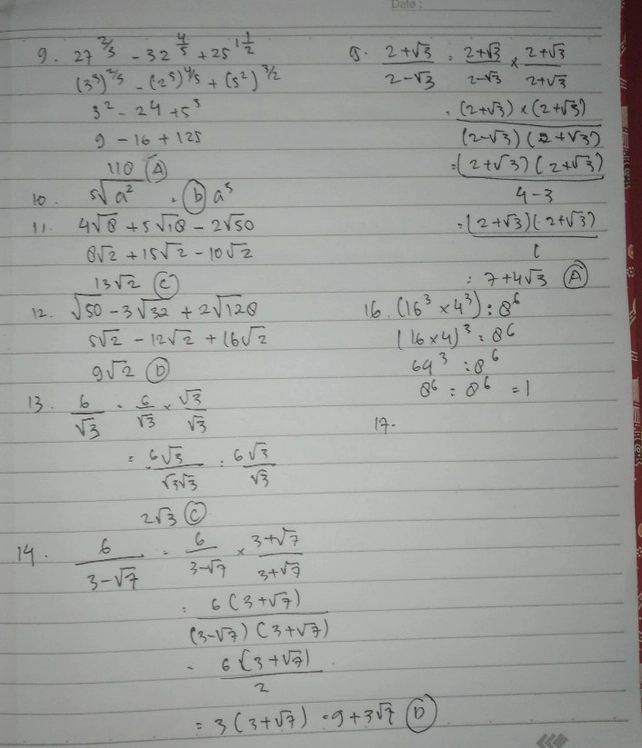 Date :
9. 27^2/3 - 32^4/5 + 25^1 1/2
(3^3)^2/3 - (2^5)^4/5 + (5^2)^3/2
3^2 - 2^4 + 5^3
9 - 16 + 125
118 (A)
10. 5√a^2 = (b) a^5
11. 4√8 + 5√18 - 2√50
8√2 + 15√2 - 10√2
13√2 (C)
12. √50 - 3√32 + 2√128
5√2 - 12√2 + 16√2
9√2 (D)
13. 6/√3 = 6/√3 × √3/√3
= 6√3/√3√3 = 6√3/√3
2√3 (C)
14. 6/3-√7 = 6/3-√7 × 3+√7/3+√7
= 6(3+√7)/(3-√7)(3+√7)
= 6(3+√7)/2
= 3(3+√7) = 9+3√7 (D)
2+√3/2-√3 = 2+√3/2-√3 × 2+√3/2+√3
= (2+√3)×(2+√3)/(2-√3)(2+√3)
= (2+√3)(2+√3)/4-3
= (2+√3)(2+√3)/1
= 7+4√3 (A)
16. (16^3 × 4^3) : 8^6
(16×4)^3 : 8^6
64^3 : 8^6
8^6 : 8^6 = 1
17.